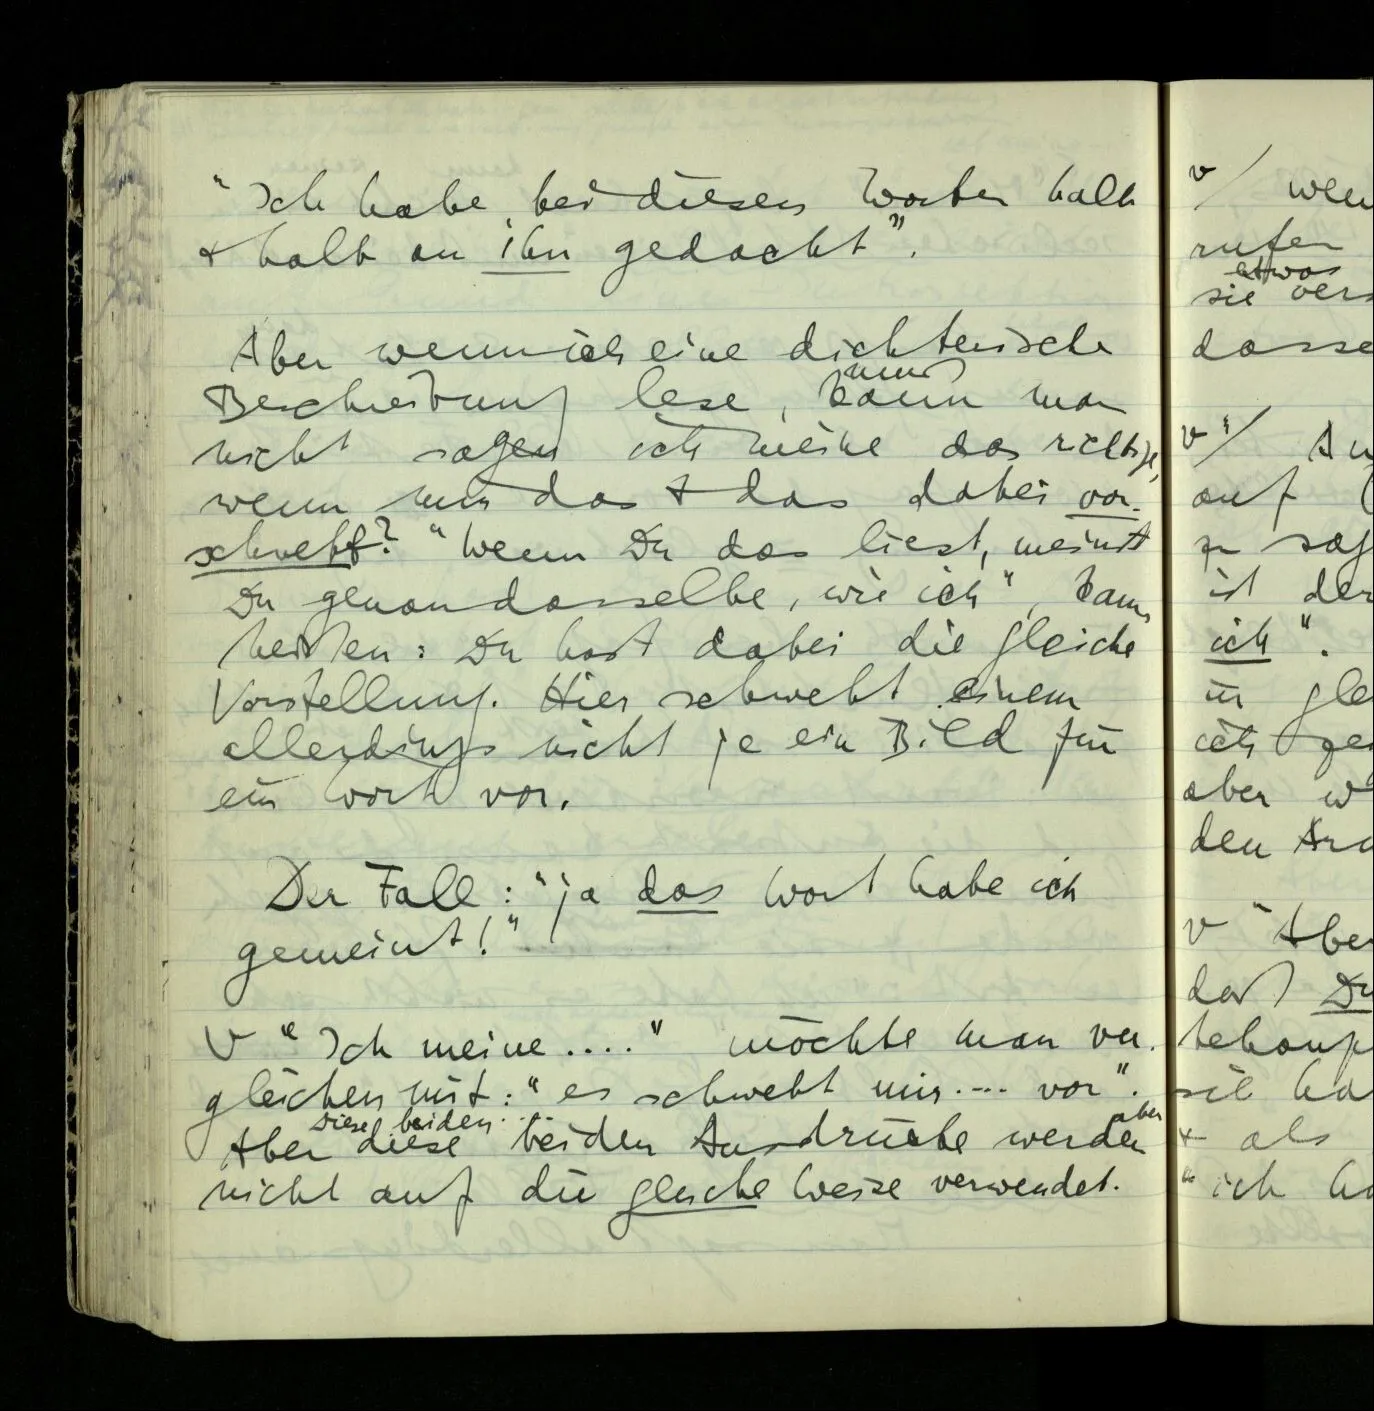 "Ich habe, bei diesen Worten halb
+ halb an ihn gedacht".
Aber wenn ich eine dichterische
Beschreibung lese, kann man
nicht sagen ich meine das richtige,
wenn mir das + das dabei vor-
schwebt? "Wenn Du das liest, meinst
Du genau dasselbe, wie ich", kann
heißen: Du hast dabei die gleiche
Vorstellung. Hier schwebt einem
allerdings nicht je ein Bild für
ein Wort vor.
Der Fall: "ja das Wort habe ich
gemeint!"
V "Ich meine...." möchte man ver-
gleichen mit: "es schwebt mir.... vor".
Diese beiden aber
Aber diese beiden Ausdrücke werden
nicht auf die gleiche Weise verwendet.
v/
rufen
etwas
sie
dasse
v"/
auf
ist der
ich".
in gle
aber w
den
v "Aber
"ich ha